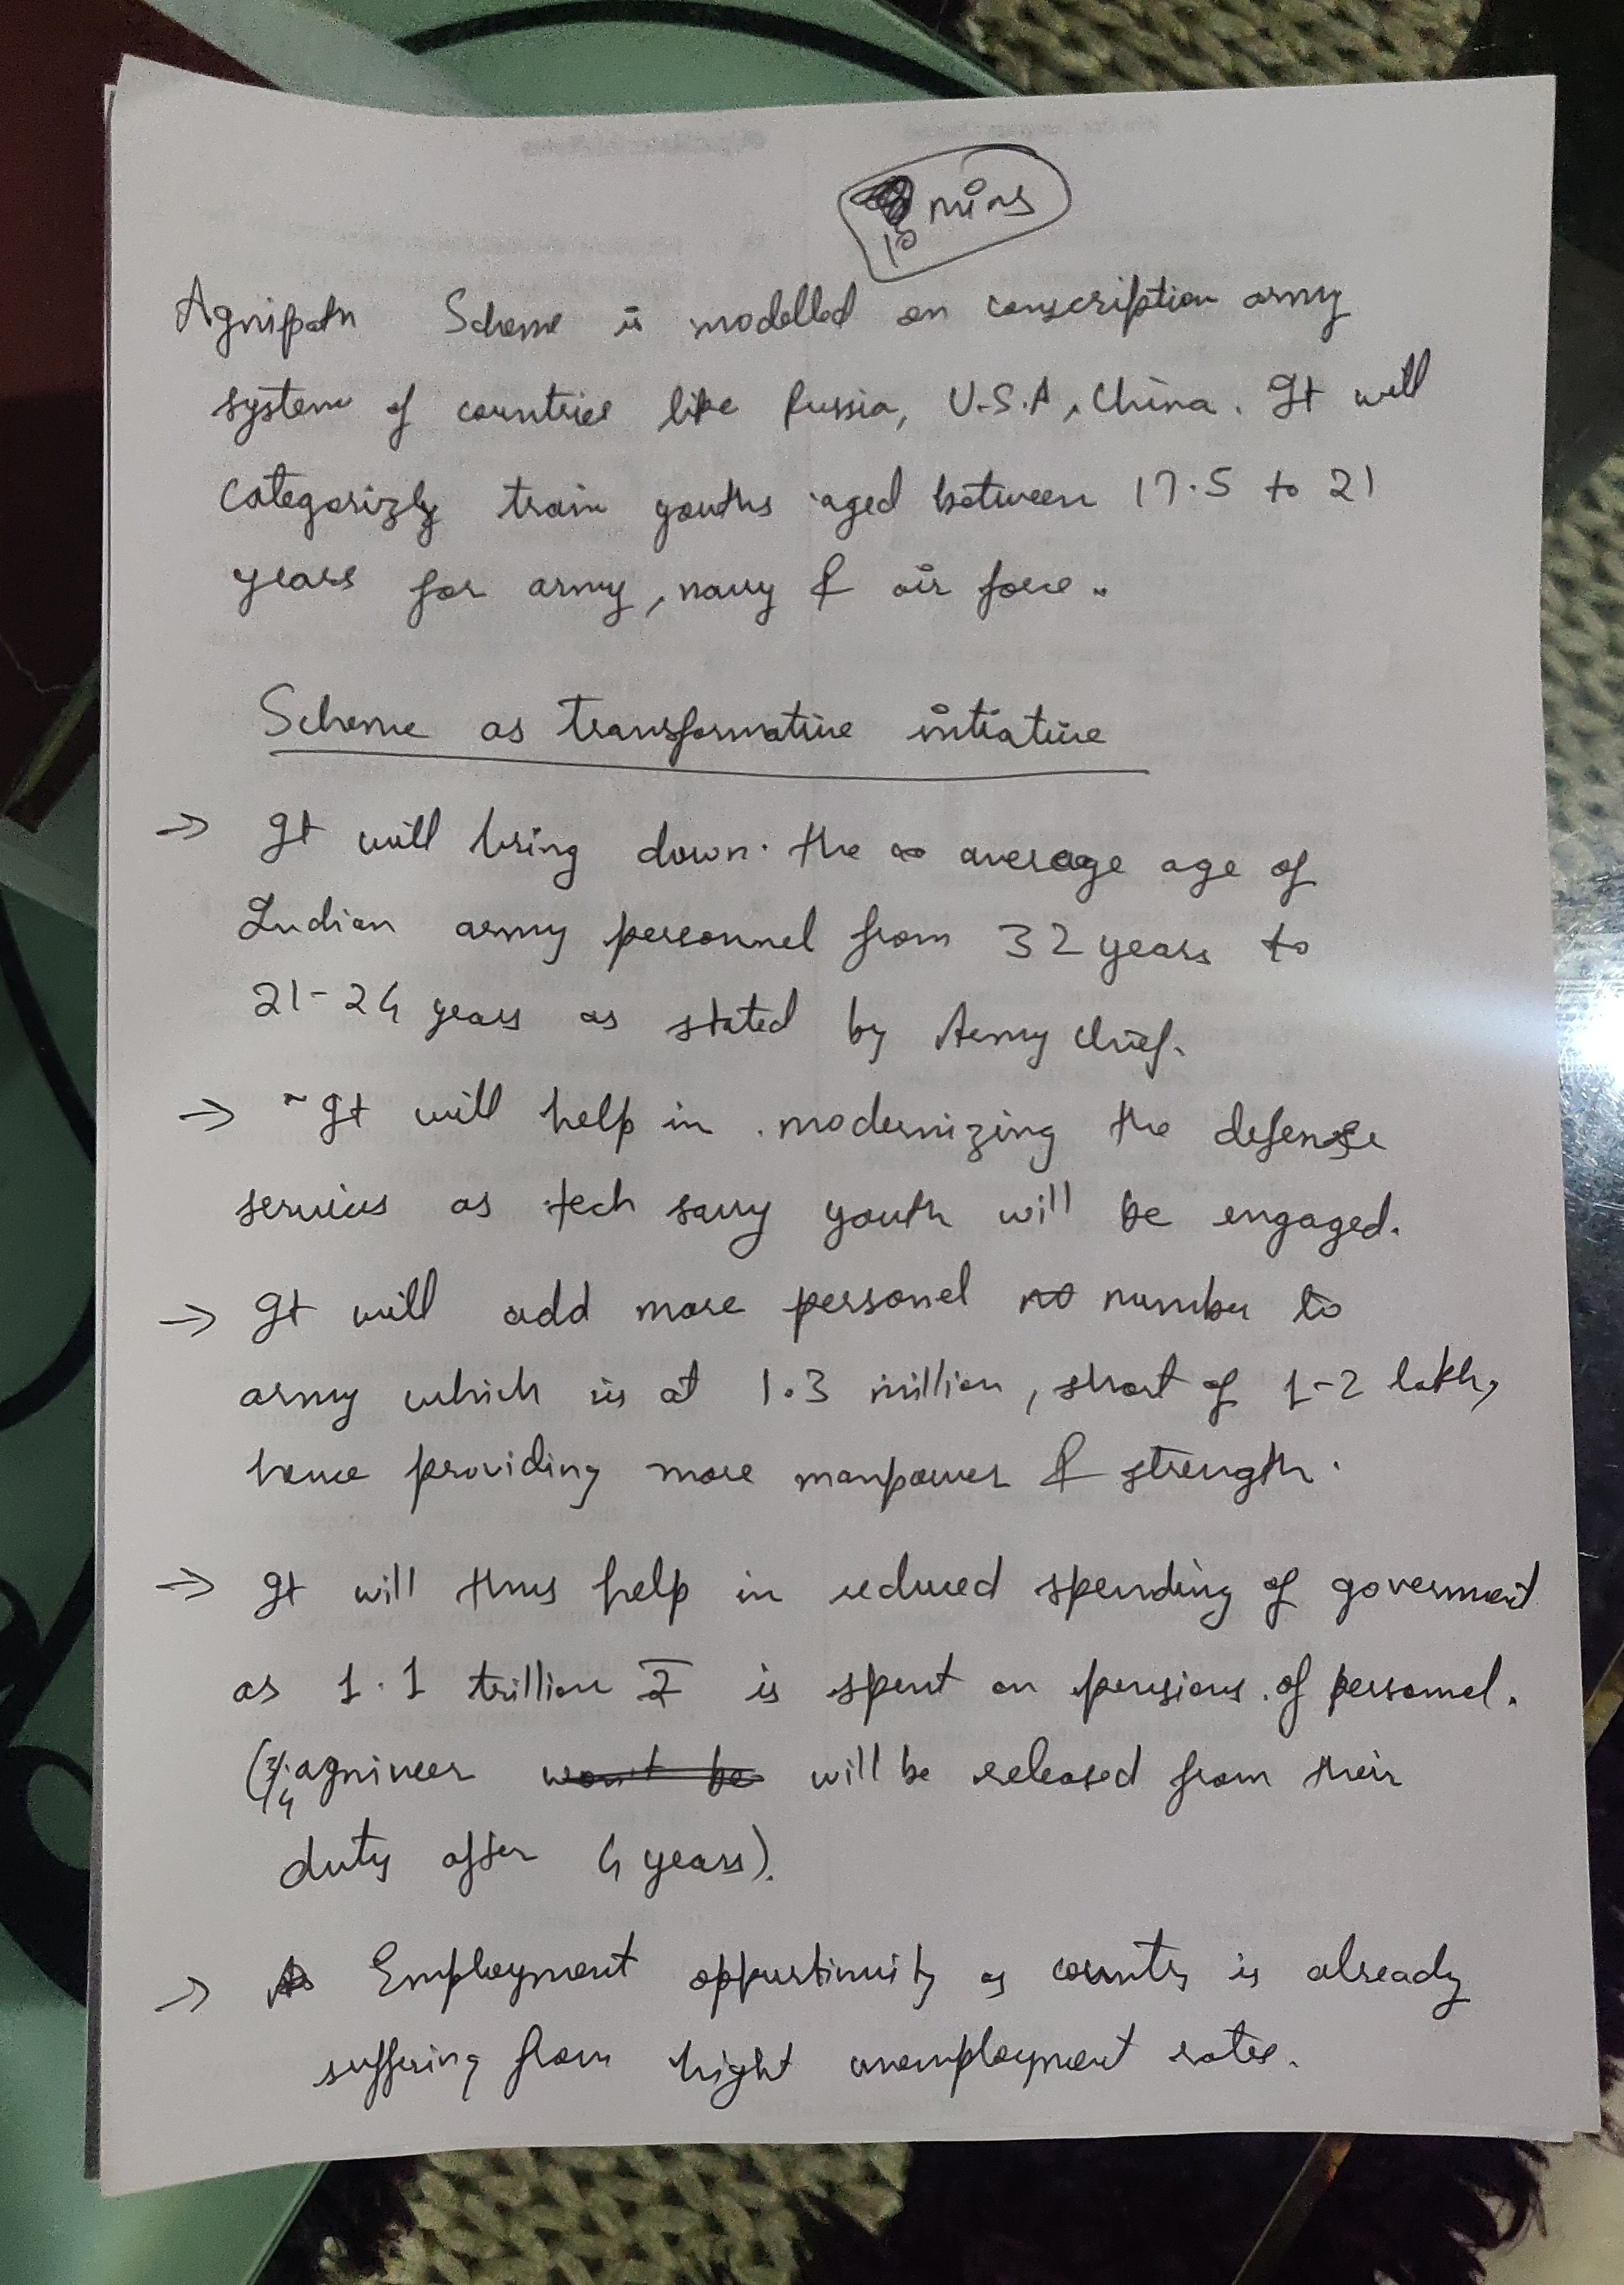 10 mins
Agnipath Scheme is modelled on conscription army
system of countries like Russia, U.S.A, China. It will
categorizly train youths aged between 17.5 to 21
years for army, navy & air force.
Scheme as transformative intiative
→ It will bring down the average age of
Indian army personnel from 32 years to
21-24 years as stated by Army Chief.
→ It will help in modernizing the defense
services as tech savvy youth will be engaged.
→ It will add more personel number to
army which is at 1.3 million, short of 1-2 lakh,
hence providing more manpower & strength.
→ It will thus help in reduced spending of government
as 1.1 trillion ₹ is spent on pensions of personnel.
(3/4 agniveer won't be will be released from their
duty after 4 years).
→ Employment oppurtinuity as country is already
suffering from hight unemployment rates.